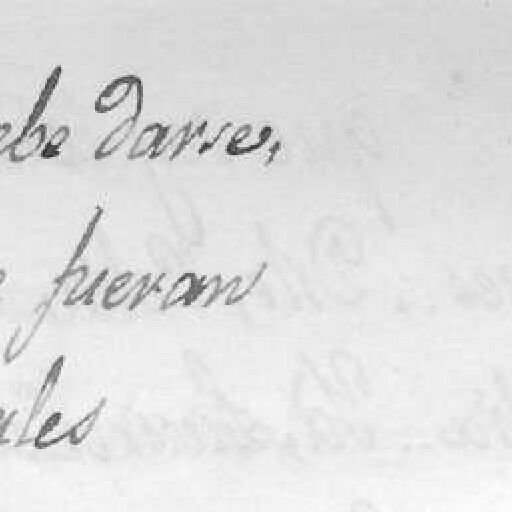 ebe darse,
fueran
ales